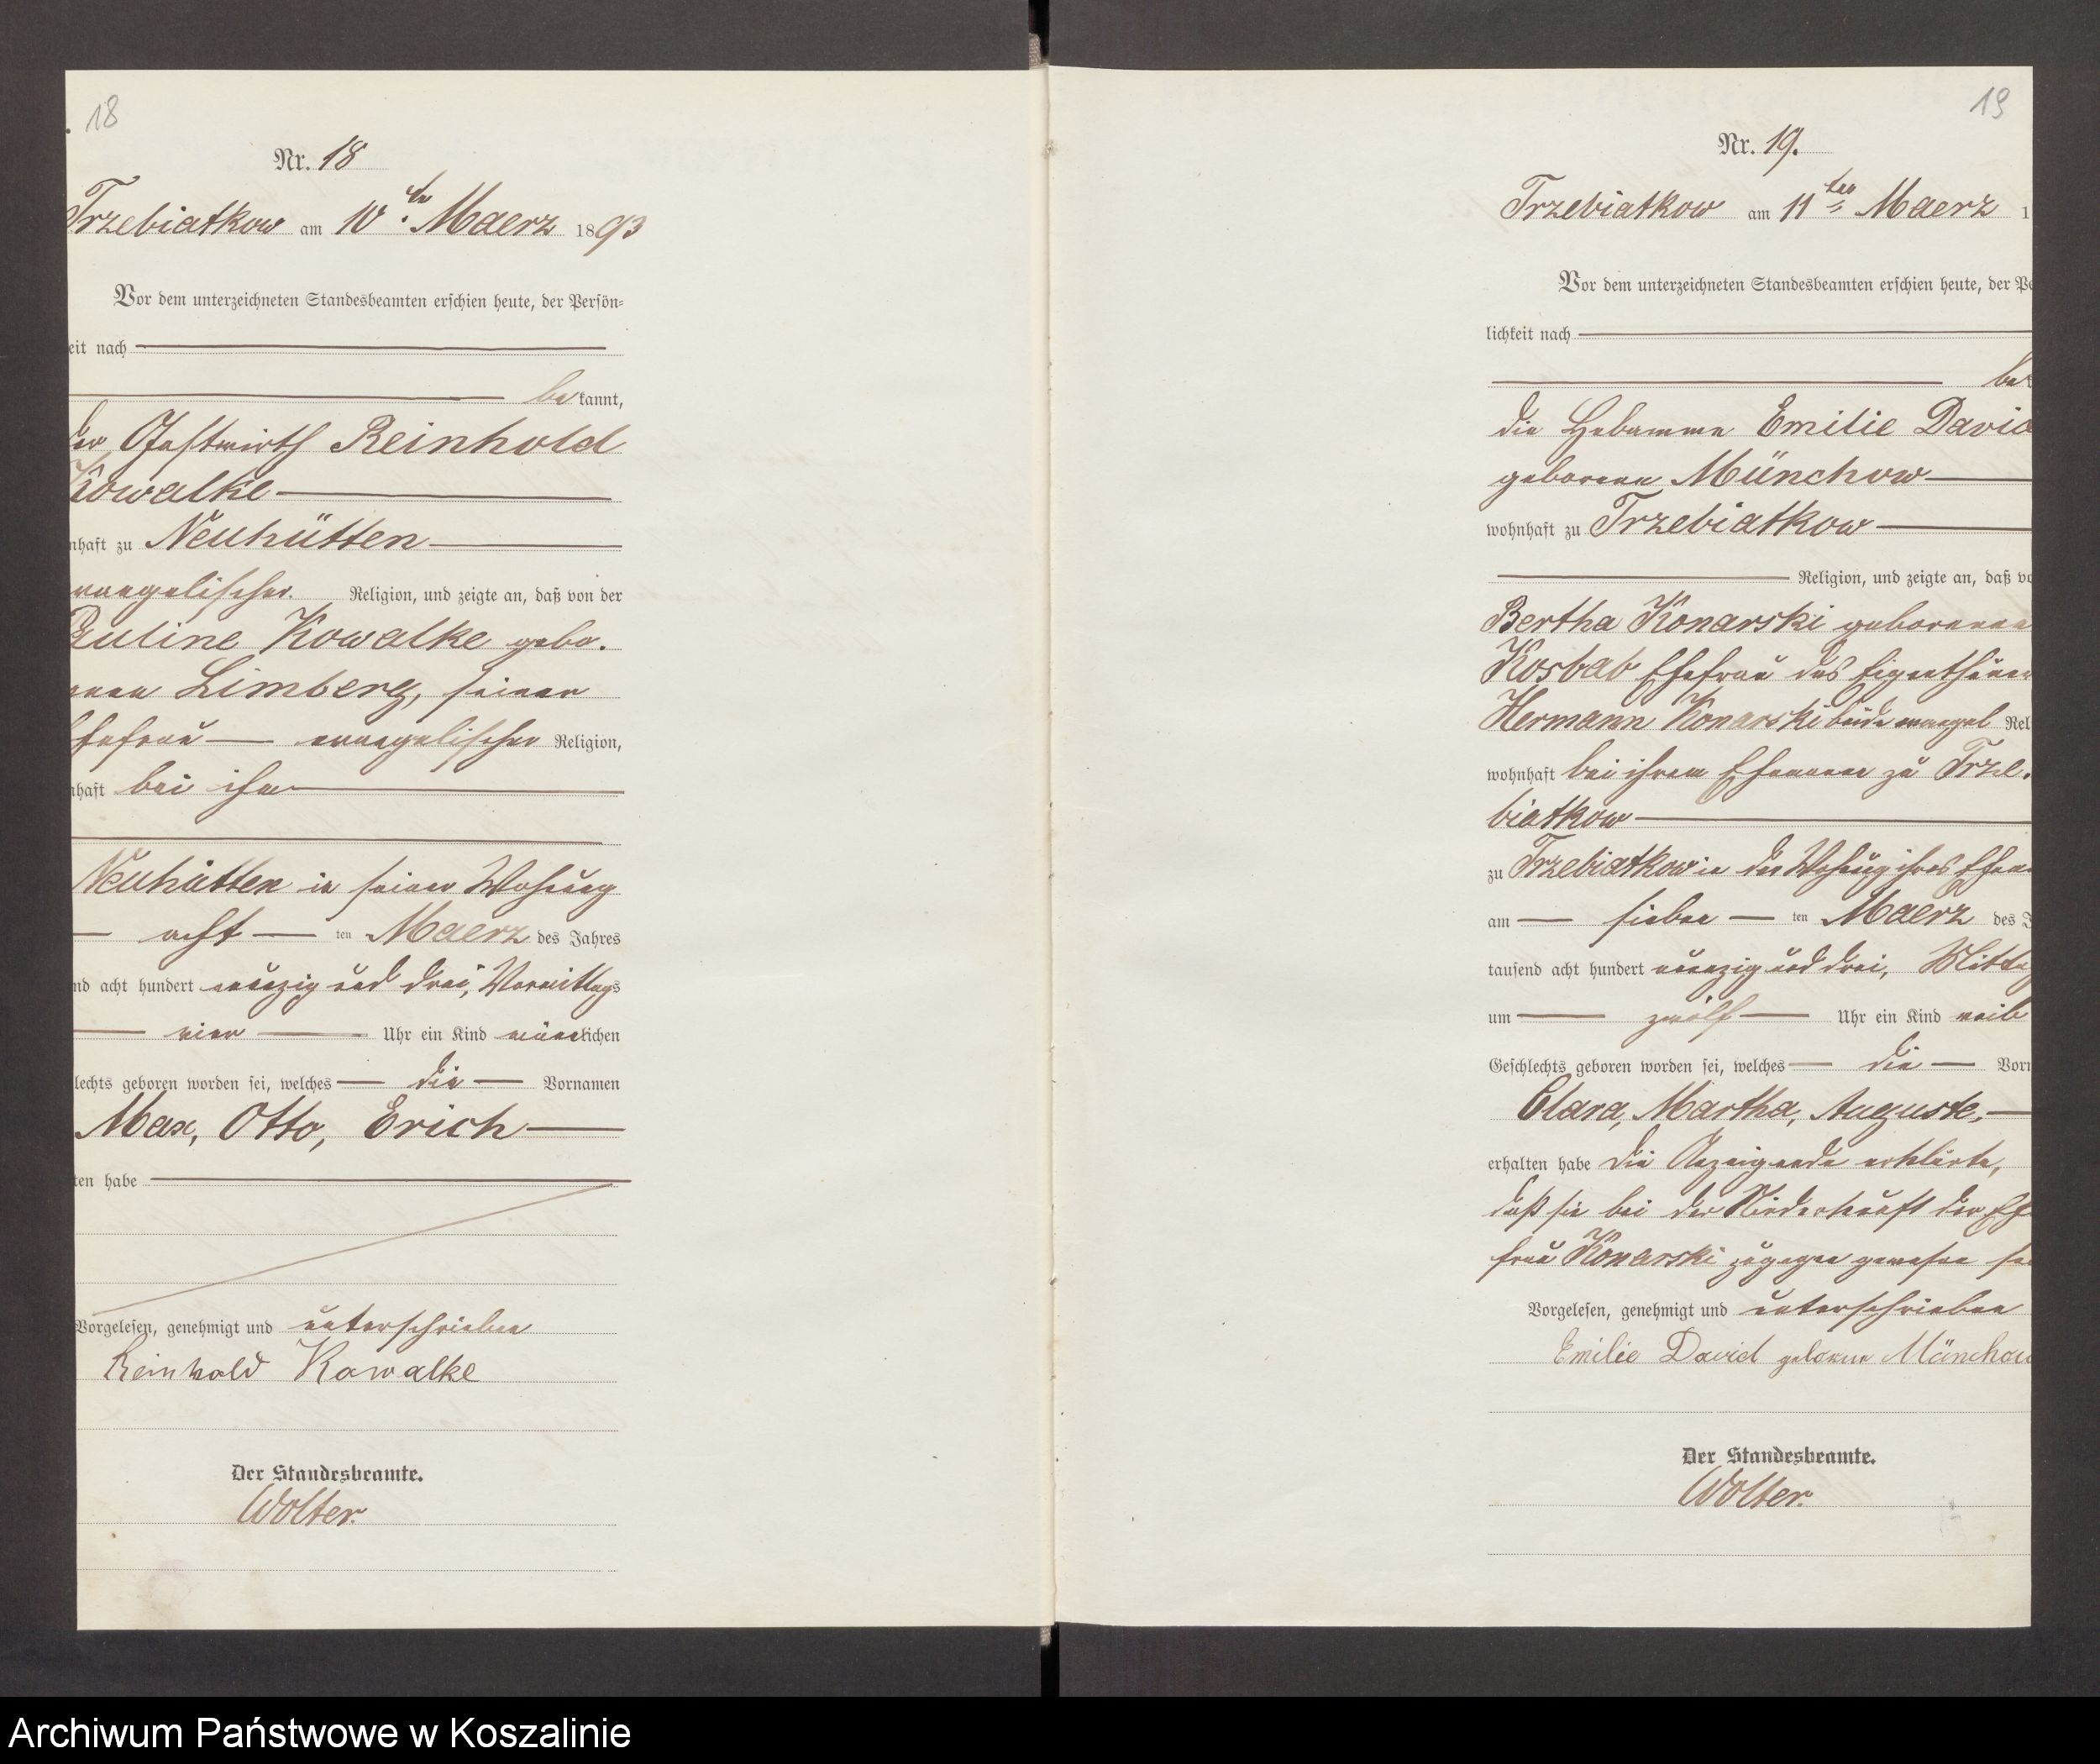 18
Nr. 18
Trzebiatkow am 10ten Maerz 1893
Vor dem unterzeichneten Standesbeamten erschien heute, der Persön-
eit nach
bekannt,
der Gastwirth Reinhold
Kowalke
nhaft zu Neuhütten
vangelischer. Religion, und zeigte an, daß von der
Pauline Kowalke gebo.
enen Limberg, seiner
Ehefrau evangelischer Religion,
nhaft bei ihm
Neuhütten in seiner Wohnung
acht ten Maerz des Jahres
nd acht hundert neunzig und drei, Vormittags
vier Uhr ein Kind männlichen
lechts geboren worden sei, welches die Vornamen
Max, Otto, Erich
ten habe
Vorgelesen, genehmigt und unterschrieben
Reinhold Kowalke
Der Standesbeamte.
Wolter.
19
Nr. 19.
Trzebiatkow am 11ten Maerz 1
Vor dem unterzeichneten Standesbeamten erschien heute, der Pe
lichkeit nach
be
die Hebamme Emilie David
geborene Münchow
wohnhaft zu Trzebiatkow
Religion, und zeigte an, daß vo
Bertha Konarski geborenen
Kosbab Ehefrau des Eigenthümer
Hermann Konarski beide evangel Rel
wohnhaft bei ihrem Ehemann zu Trze.
biatkow
zu Trzebiatkow in der Wohnung ihres Ehem
am sieben ten Maerz des J
tausend acht hundert neunzig und drei, Mittag
um zwölf Uhr ein Kind weib
Geschlechts geboren worden sei, welches die Vorn
Clara, Martha, Auguste,
erhalten habe Die Anzeigende erklärte,
daß sie bei der Niederkunft der Ehe
frau Konarski zugegen gewesen sei
Vorgelesen, genehmigt und unterschrieben
Emilie David geborne Münchow
Der Standesbeamte.
Wolter.
Archiwum Państwowe w Koszalinie